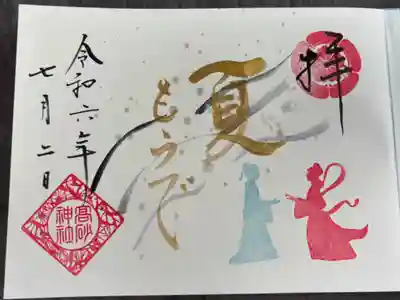 奉拝
夏
もうで
令和六年
七月二日
高砂
神社